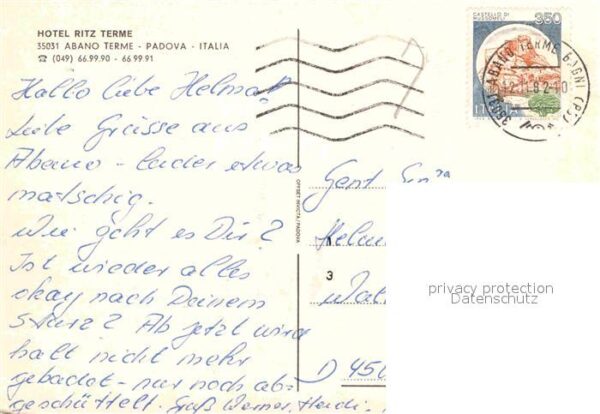 HOTEL RITZ TERME
35031 ABANO TERME - PADOVA - ITALIA
☎ (049) 66.99.90 - 66.99.91
Hallo liebe Helma!
Liebe Grüsse aus
Abano - leider etwas
matschig.
Wie geht es Dir?
Ist wieder alles
okay nach Deinem
Sturz? Ab jetzt wird
halt nicht mehr
gebadet - nur noch ab-
geschüttelt. Gruß Werner, Heidi
OFFSET INVICTA/PADOVA
3
CASTELLO DI
MUSSOMELI
350
35031 ABANO TERME BAGNI (PD)
D 450
privacy protection
Datenschutz